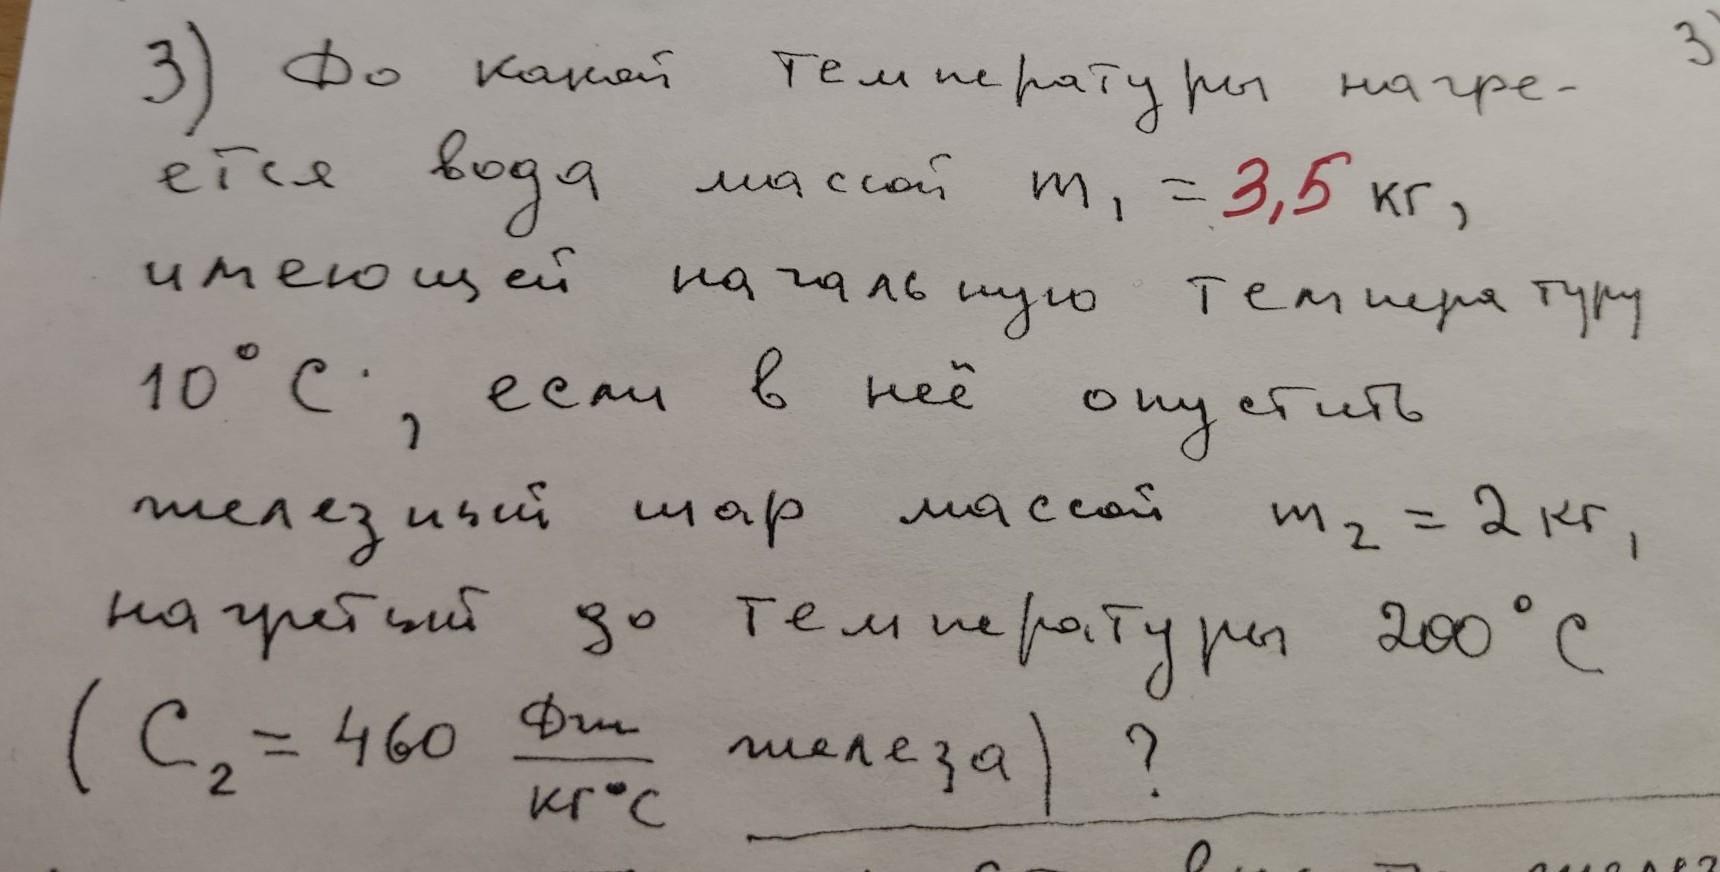 3) До какой температуры нагре-
ется вода массой m₁ = 3,5 кг,
имеющей начальную температуру
10°С, если в неё опустить
железный шар массой m₂ = 2 кг,
нагретый до температуры 200°С
(С₂ = 460 Дж/кг°С железа) ?
3)